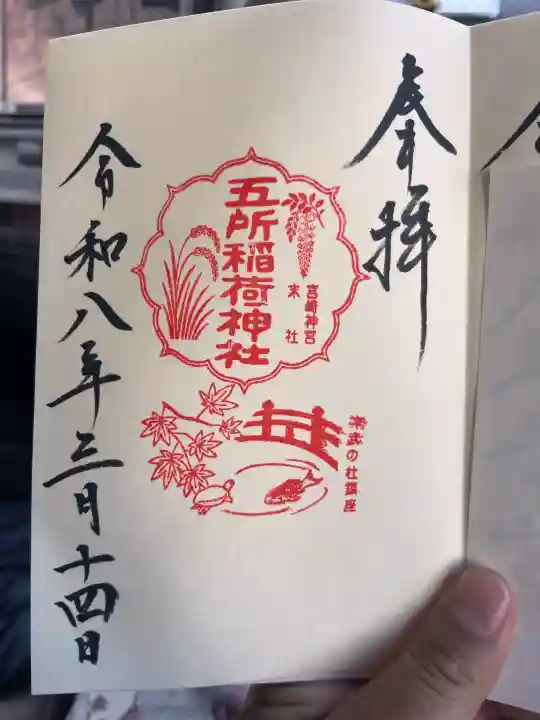 奉拝
宮崎神宮
末社
五所稲荷神社
神武の杜鎮座
令和八年三月十四日